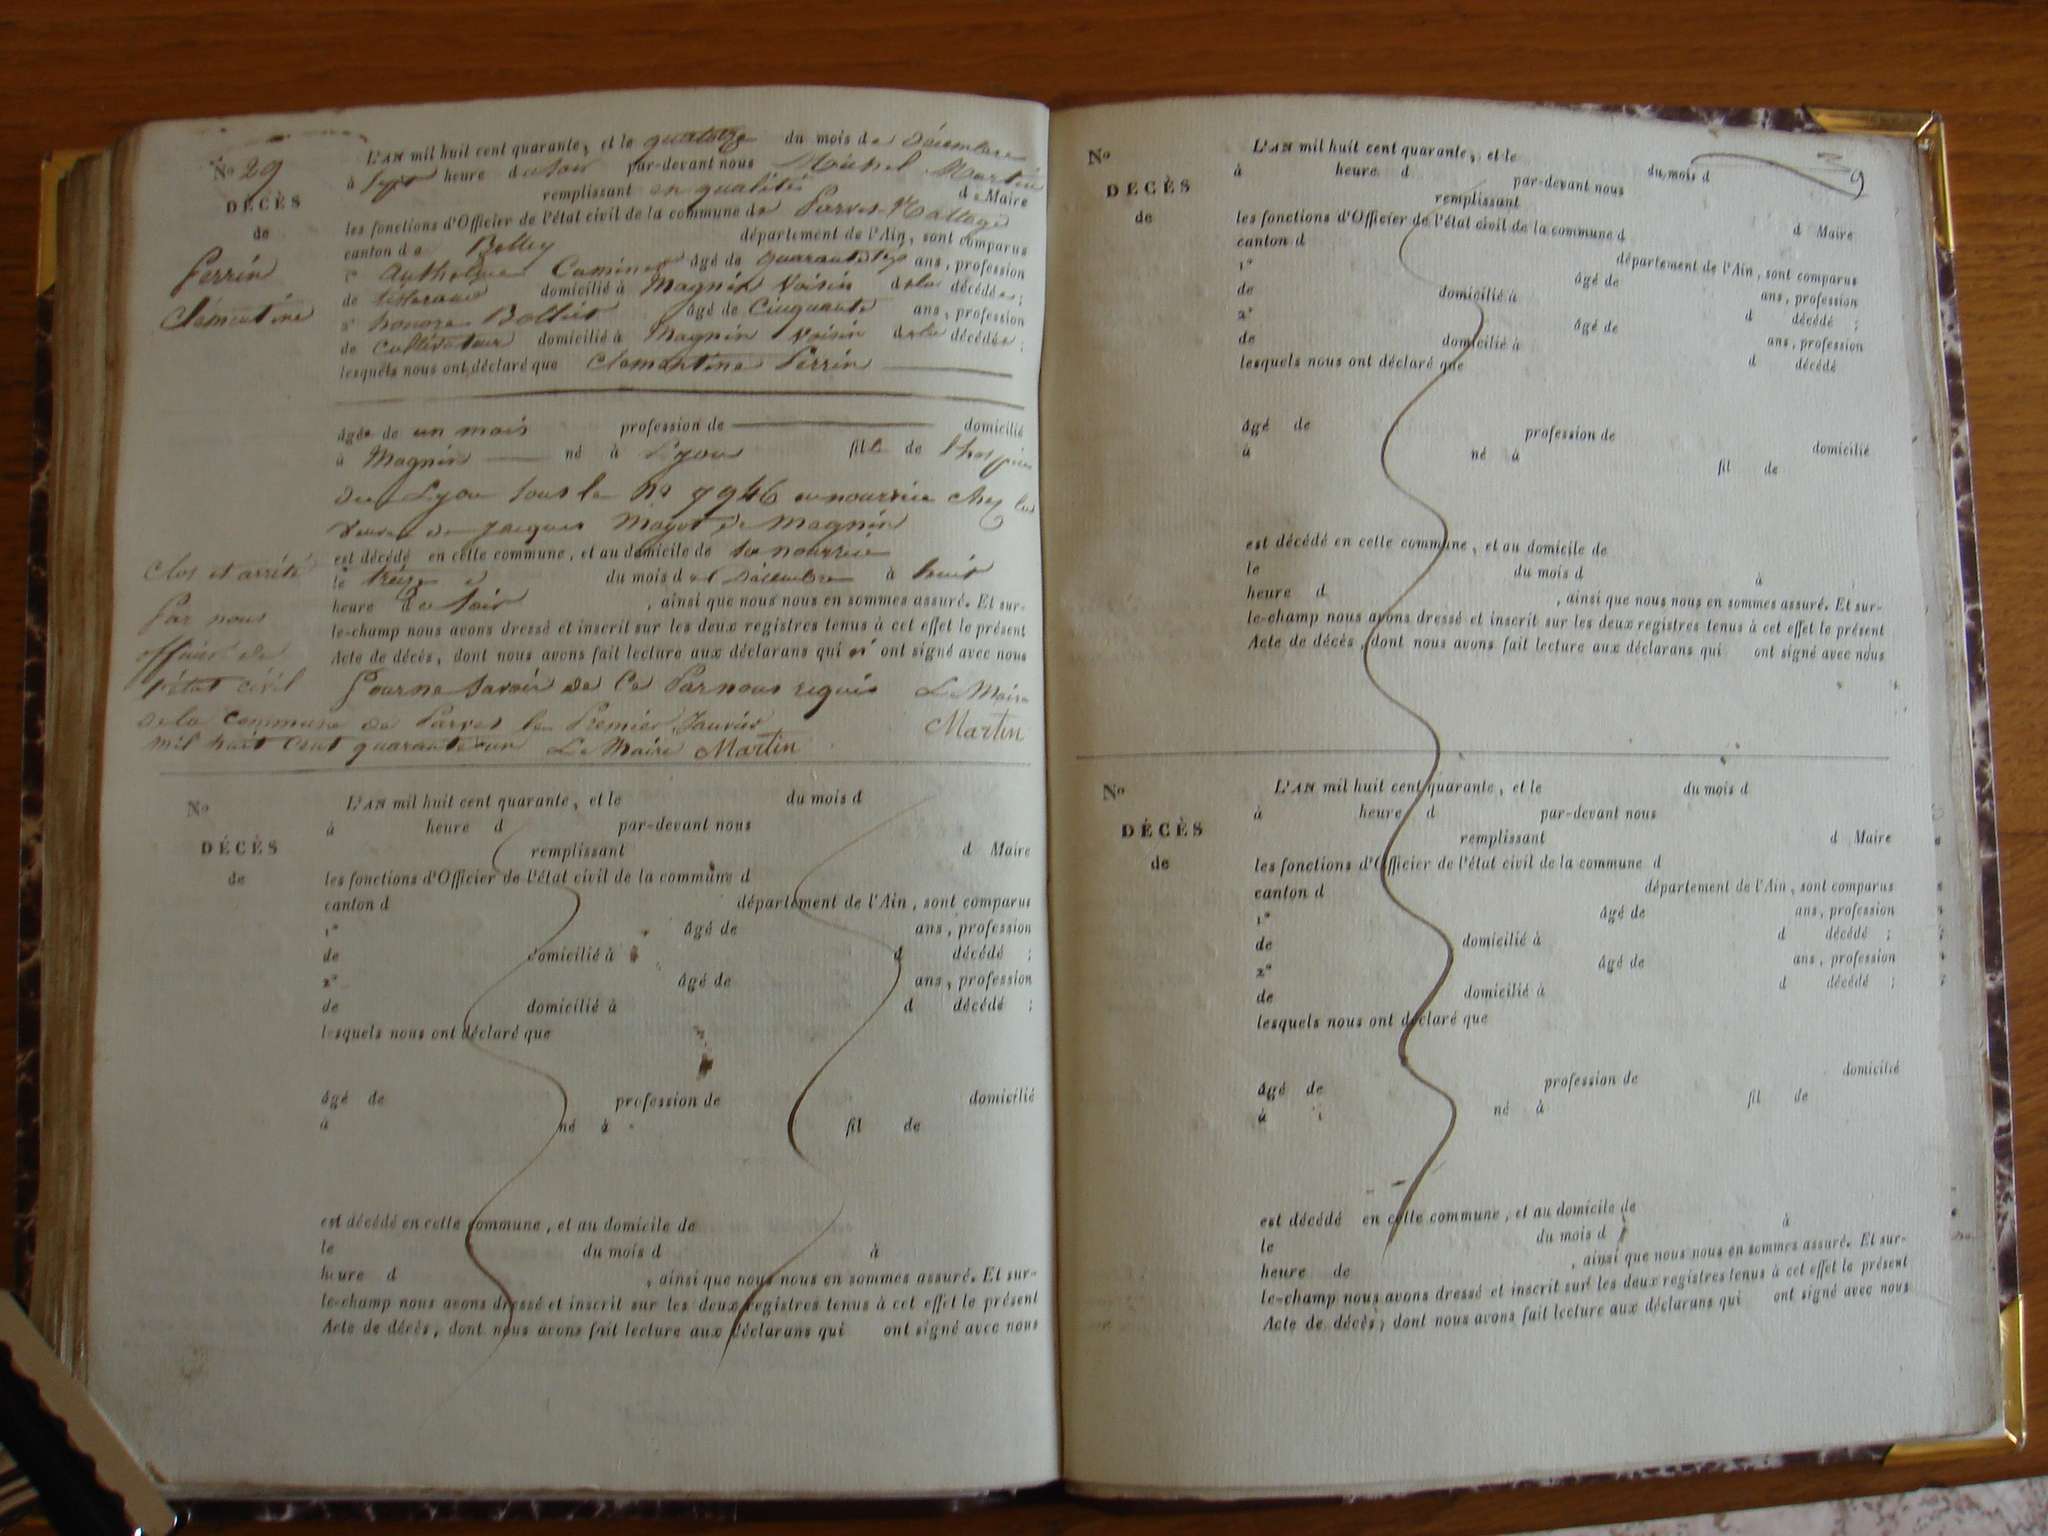 No 29
DÉCÈS
de
Perrin
Clémentine
L'AN mil huit cent quarante, et le quatorze du mois de Décembre
à Sept heure du Soir par-devant nous Michel Martin
remplissant en qualité de Maire
les fonctions d'Officier de l'état civil de la commune de Parves-Nattage
canton de Belley département de l'Ain, sont comparus
1° Anthelme âgé de quarante ans, profession
de domicilié à Magnin Voisin de la décédée;
2° honore âgé de Cinquante ans, profession
de Cultivateur domicilié à Magnin Voisin de la décédée;
lesquels nous ont déclaré que Clemantine Perrin
âgée de un mois profession de domicilié
à Magnin né à Lyon fille de l'hospice
de Lyon sous le No 7946 en nourrice chez la
veuve de jacques de Magnin
est décédé en celle commune, et au domicile de sa nourrice
le treize du mois de Décembre à huit
heure du Soir, ainsi que nous nous en sommes assuré. Et sur-
le-champ nous avons dressé et inscrit sur les deux registres tenus à cet effet le présent
Acte de décès, dont nous avons fait lecture aux déclarans qui n' ont signé avec nous
Pour ne Savoir de Ce Par nous requis Le Maire
Martin
Clos et arrêté
Par nous
officier de
l'état civil
de la Commune de Parves le Premier Janvier
mil huit Cent quarante un Le Maire Martin
No
DÉCÈS
de
L'AN mil huit cent quarante, et le du mois d
à heure d par-devant nous
remplissant d Maire
les fonctions d'Officier de l'état civil de la commune d
canton d département de l'Ain, sont comparus
1° âgé de ans, profession
de domicilié à d décédé ;
2° âgé de ans, profession
de domicilié à d décédé ;
lesquels nous ont déclaré que
âgé de profession de domicilié
à né à fil de
est décédé en celle commune, et au domicile de
le du mois d à
heure d , ainsi que nous nous en sommes assuré. Et sur-
le-champ nous avons dressé et inscrit sur les deux registres tenus à cet effet le présent
Acte de décès, dont nous avons fait lecture aux déclarans qui ont signé avec nous
No
DÉCÈS
de
L'AN mil huit cent quarante, et le du mois d
à heure d par-devant nous
remplissant d Maire
les fonctions d'Officier de l'état civil de la commune d
canton d département de l'Ain, sont comparus
1° âgé de ans, profession
de domicilié à d décédé ;
2° âgé de ans, profession
de domicilié à d décédé
lesquels nous ont déclaré que
âgé de profession de domicilié
à né à fil de
est décédé en celle commune, et au domicile de
le du mois d à
heure d , ainsi que nous nous en sommes assuré. Et sur-
le-champ nous avons dressé et inscrit sur les deux registres tenus à cet effet le présent
Acte de décès, dont nous avons fait lecture aux déclarans qui ont signé avec nous
No
DÉCÈS
de
L'AN mil huit cent quarante, et le du mois d
à heure d par-devant nous
remplissant d Maire
les fonctions d'Officier de l'état civil de la commune d
canton d département de l'Ain, sont comparus
1° âgé de ans, profession
de domicilié à d décédé ;
2° âgé de ans, profession
de domicilié à d décédé ;
lesquels nous ont déclaré que
âgé de profession de domicilié
à né à fil de
est décédé en celle commune, et au domicile de
le du mois d à
heure de , ainsi que nous nous en sommes assuré. Et sur-
le-champ nous avons dressé et inscrit sur les deux registres tenus à cet effet le présent
Acte de décès, dont nous avons fait lecture aux déclarans qui ont signé avec nous